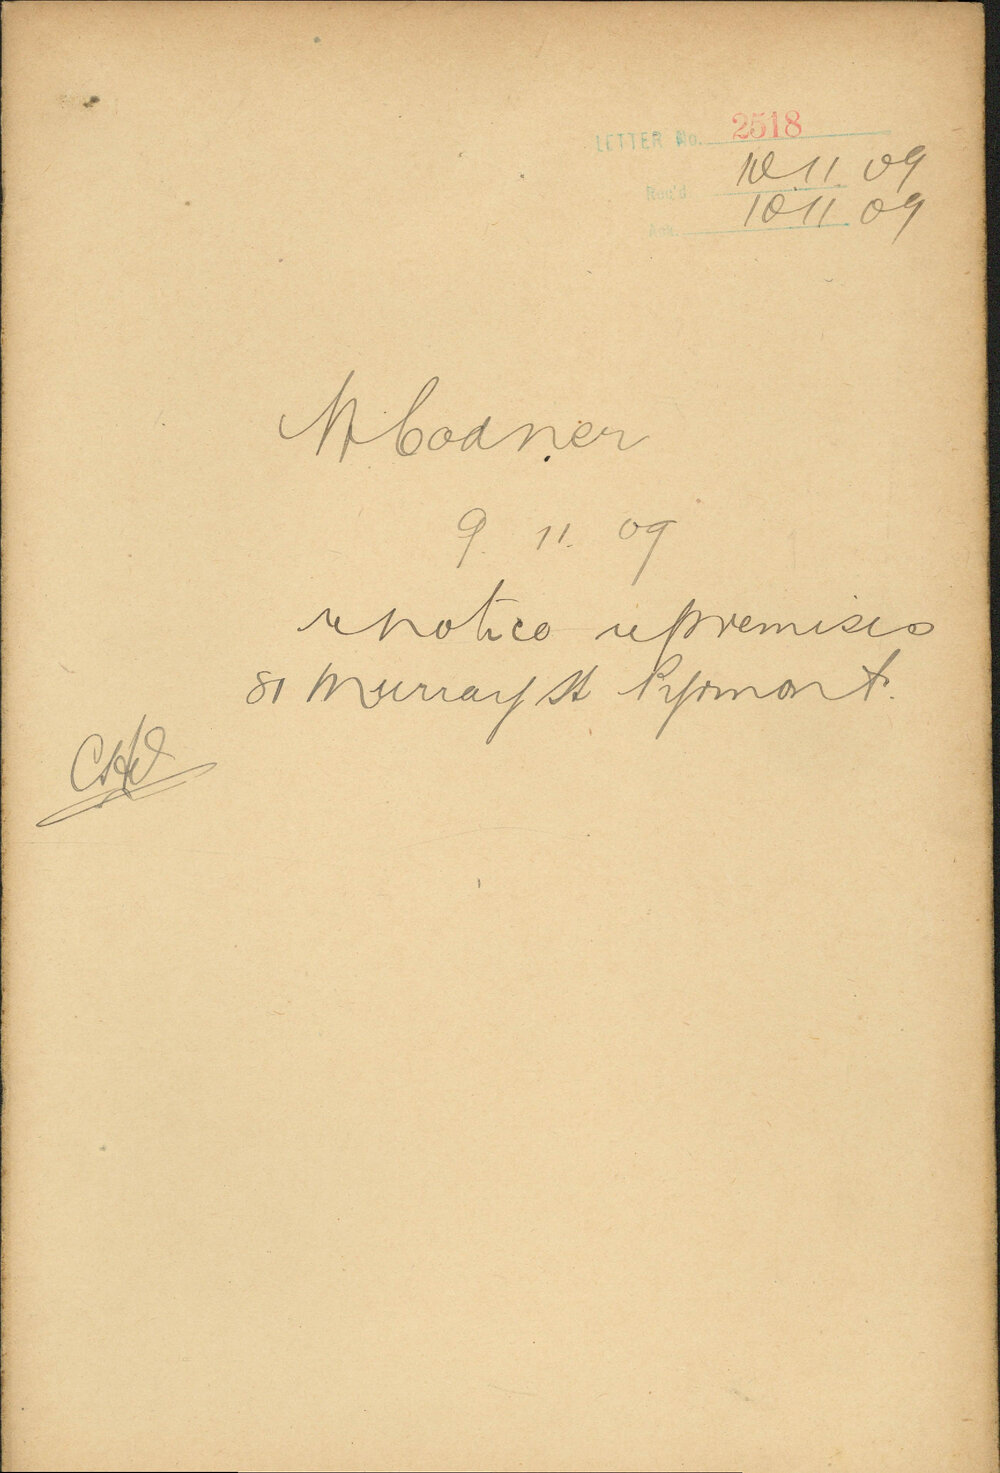 LETTER No. 2518
Rec'd 10 11 09
Ack. 10 11 09
Codner
9. 11. 09
re notice re premises
81 Murray St Pyrmont.